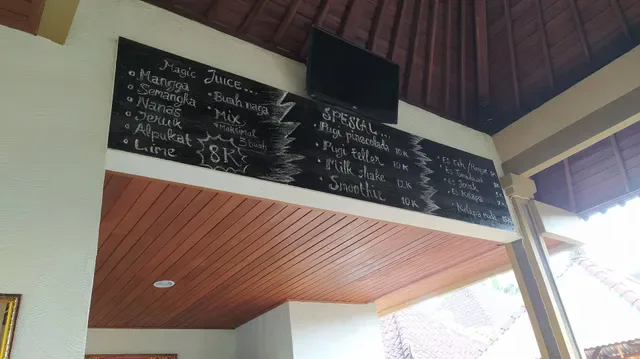 Magic Juice...
Mangga
Semangka
Nanas
Jeruk
Alpukat
Lime
Buah naga
Mix
Maksimal
3 buah
8K
SPESIAL...
Pugi pinacolada 10K
Pugi teller 10K
Milk shake 12K
Smoothie 10K
Es Teh/
Es
Es Jeruk
Es Kelapa
Kelapa muda